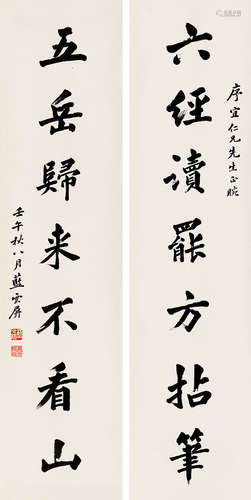 序宜仁兄先生正腕
六經讀罷方拈筆
五岳歸来不看山
壬午秋八月藍雲屏